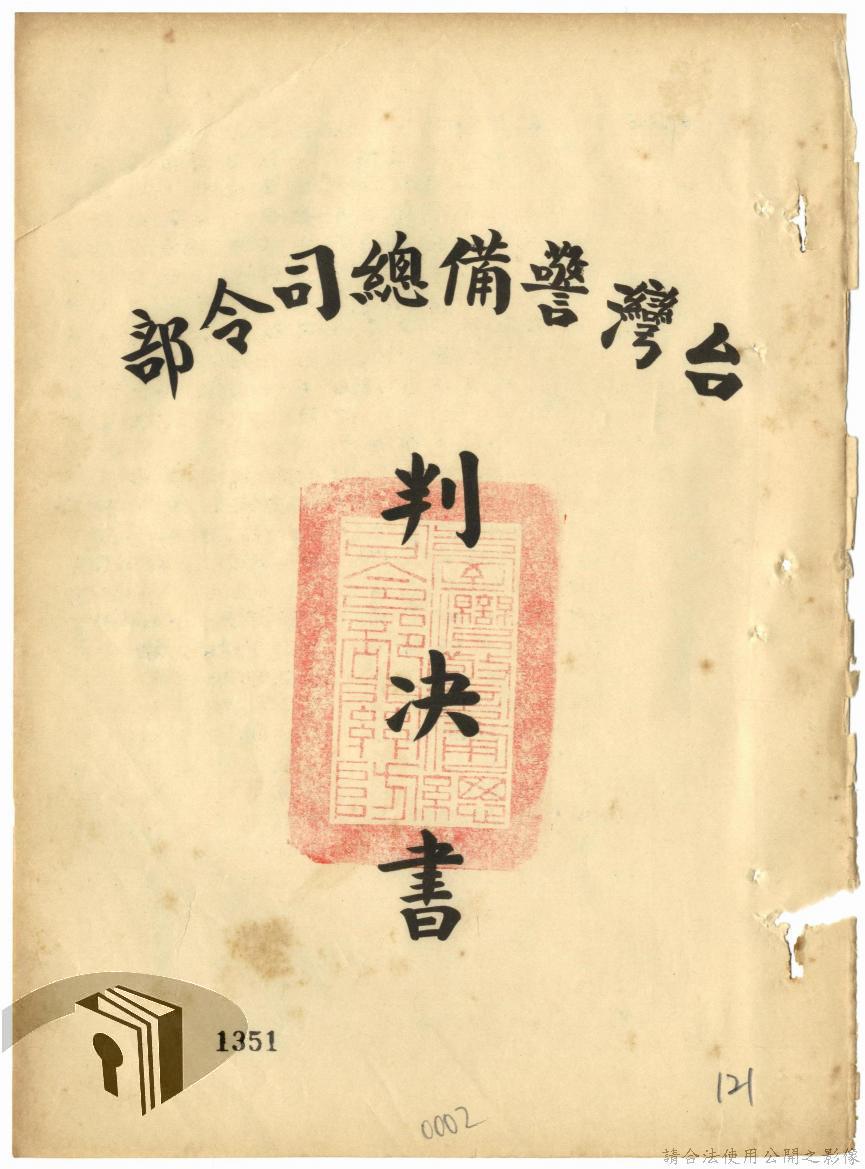 台灣警備總司令部
判
决
書
1351
121
0002
請合法使用公開之影像